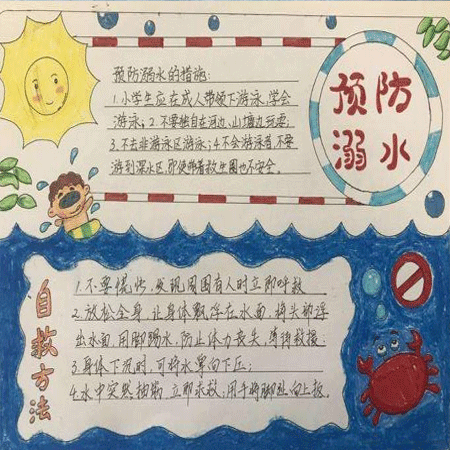 预防溺水的措施:
1.小学生应在成人带领下游泳,学会
游泳;2.不要独自在河边,山塘边玩耍;
3.不去非游泳区游泳;4.不会游泳者,不要
游到深水区,即使带着救生圈也不安全.
预防
溺水
自救方法
1.不要慌忙,发现周围有人时立即呼救
2.放松全身,让身体飘浮在水面,将头部浮
出水面,用脚踢水,防止体力丧失,等待救援;
3.身体下沉时,可将水掌向下压;
4.水中突然抽筋,立即求救;用手将脚趾向上扳.